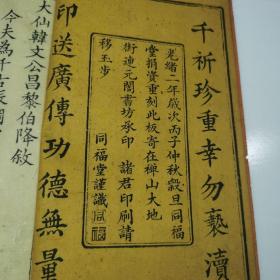 千祈珍重幸勿褻瀆
光緒二年歲次丙子仲秋穀旦同福
堂捐資重刻此板寄在禪山大地
街連元閣書坊承印 諸君印刷請
移玉步
同福堂謹識
印送廣傳功德無量
大仙韓文公昌黎伯降敘
今夫為千古